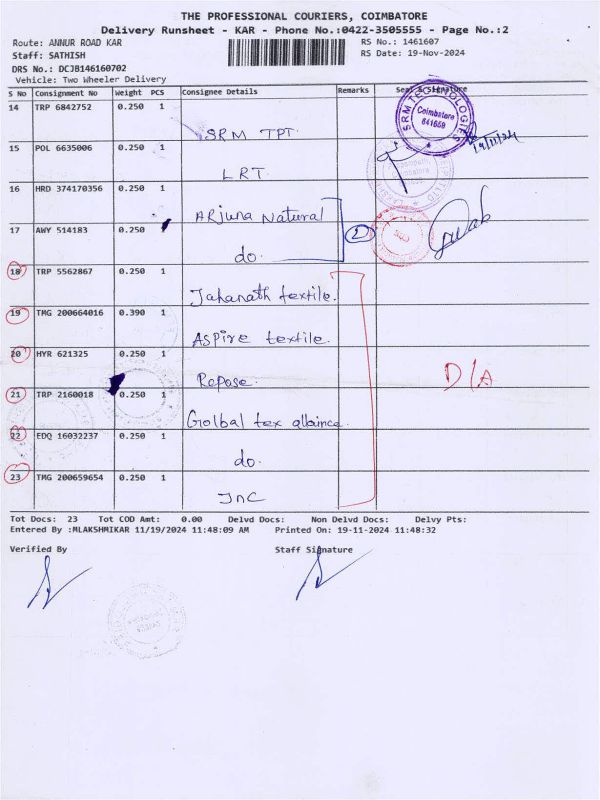 THE PROFESSIONAL COURIERS, COIMBATORE
Delivery Runsheet - KAR - Phone No.:0422-3505555 - Page No.:2
Route: ANNUR ROAD KAR RS No.: 1461607
Staff: SATHISH RS Date: 19-Nov-2024
DRS No.: DCJB146160702
Vehicle: Two Wheeler Delivery
S No Consignment No Weight PCS Consignee Details Remarks Seal & Signature
14 TRP 6842752 0.250 1
SRM TPT.
SRM TECHNOLOGIES
Coimbatore
641659
19/11/24
15 POL 6635006 0.250 1
LRT.
16 HRD 374170356 0.250 1
ARjuna Natural
17 AWY 514183 0.250
do.
2
18 TRP 5562867 0.250 1
Jahanath textile.
19 TMG 200664016 0.390 1
ASPire textile.
20 HYR 621325 0.250 1
Repose.
D/A
21 TRP 2160018 0.250 1
Golbal tex albaince.
22 EDQ 16032237 0.250 1
do.
23 TMG 200659654 0.250 1
JnC
Tot Docs: 23 Tot COD Amt: 0.00 Delvd Docs: Non Delvd Docs: Delvy Pts:
Entered By :MLAKSHMIKAR 11/19/2024 11:48:09 AM Printed On: 19-11-2024 11:48:32
Verified By Staff Signature